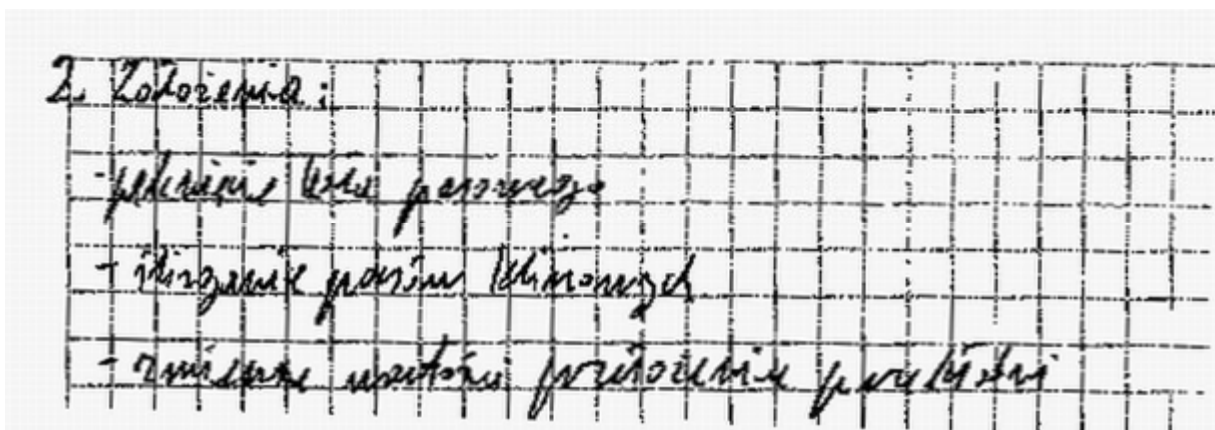 2. Założenia:
- pęknięcie koła pasowego
- ślizganie pasów klinowych
- zmienne wartości przełożenia prędkości